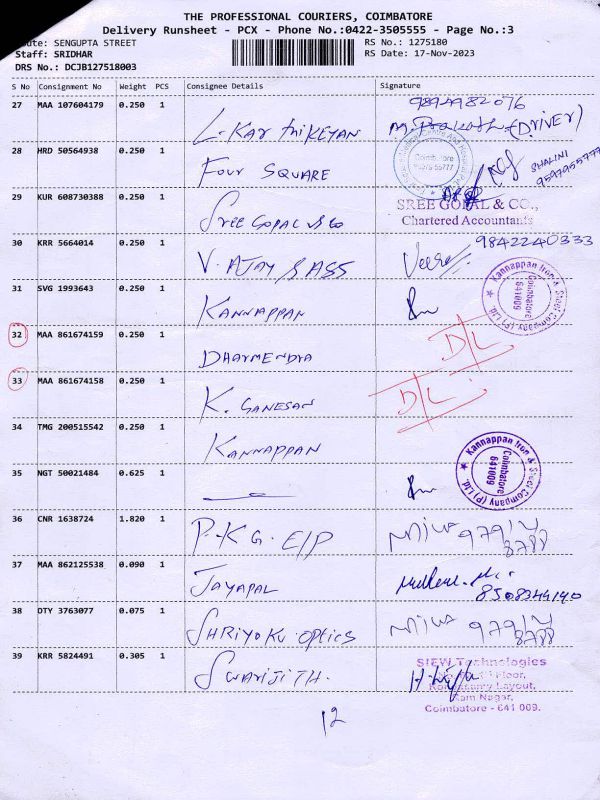 THE PROFESSIONAL COURIERS, COIMBATORE
Delivery Runsheet - PCX - Phone No.:0422-3505555 - Page No.:3
Route: SENGUPTA STREET
RS No.: 1275180
Staff: SRIDHAR
RS Date: 17-Nov-2023
DRS No.: DCJB127518003
S No Consignment No Weight PCS Consignee Details Signature
27 MAA 107604179 0.250 1 L. Karthikeyan 9894982076
(DRIVER)
28 HRD 50564938 0.250 1 FOUR SQUARE Coimbatore SHALINI
29 KUR 608730388 1 SREE GOPAL & CO SREE GOPAL & CO.,
Chartered Accountants
30 KRR 5664014 0.250 1 V. AJAY & ASS 9842240333
31 SVG 1993643 0.250 1 KANNAPPAN Kannappan Iron & Steel Company (P) Ltd. Coimbatore 641009
32 MAA 861674159 0.250 1 DHARMENDRA D/L
33 MAA 861674158 0.250 1 K. GANESAN D/L
34 TMG 200515542 0.250 1 KANNAPPAN Kannappan Iron & Steel Company (P) Ltd. Coimbatore 641009
35 NGT 50021484 0.625 1
36 CNR 1638724 1.820 1 P.K.G. E/P
8788
37 MAA 862125538 0.090 1 JAYAPAL 8508344140
38 DTY 3763077 0.075 1 SHRIYOKU OPTICS
8788
39 KRR 5824491 0.305 1 SWARIJITH. SIEW Technologies
Floor,
Layout,
Ram Nagar,
Coimbatore - 641 009.
12